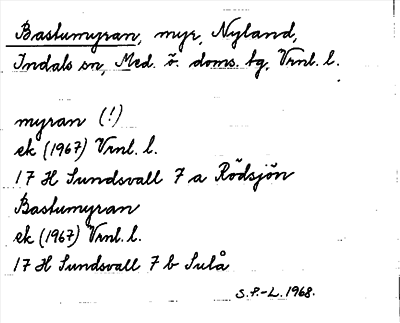 Bastumyran, myr, Nyland,
Indals sn, Med. ö. doms. tg, Vrnl. l.
myran (!)
ek (1967) Vrnl. l.
17 H Sundsvall 7 a Rödsjön
Bastumyran
ek (1967) Vrnl. l.
17 H Sundsvall 7 b Sulå
S.P.-L. 1968.